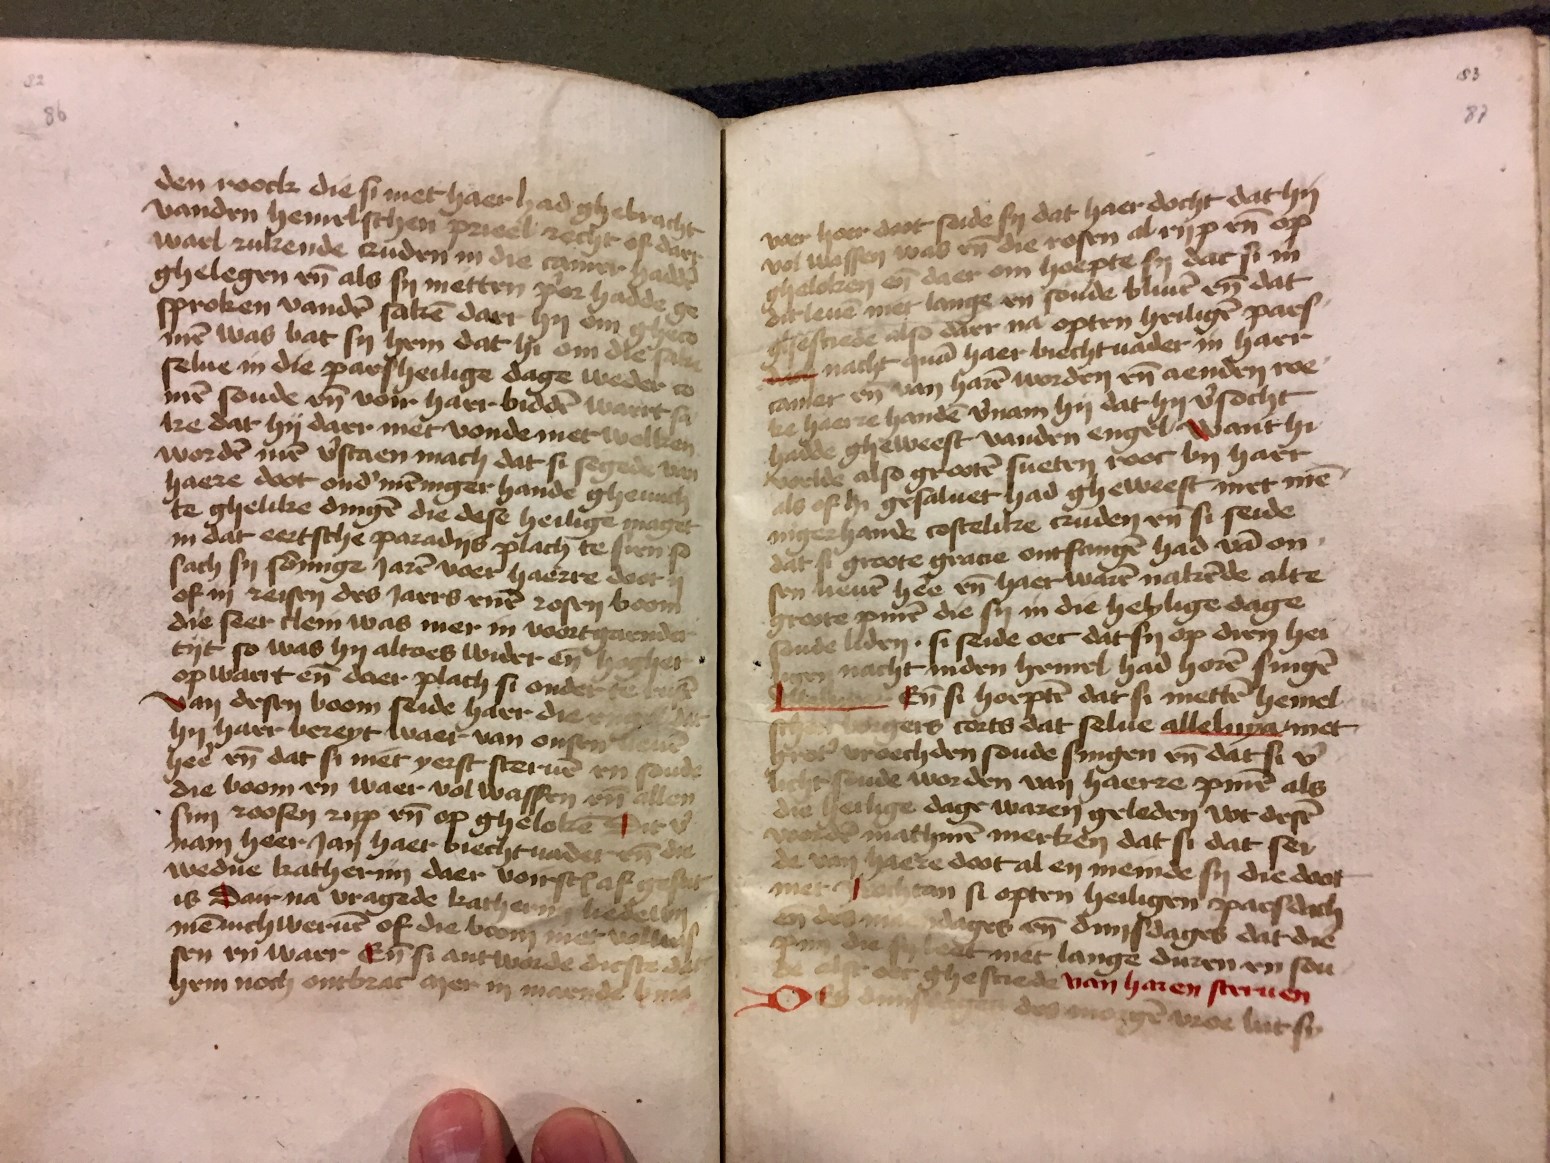 82
86
den roock die si met haer had ghebracht
vanden hemelschen prieel recht of daer
wael rukende cruden in die camer haddē
ghelegen en̄ als sij metten por hadde ge
sproken vandē saken daer hij om gheco
mē was bat sij hem dat hi om die
selue in die paesheilige dage weder co
mē soude en̄ voir haer biddē waert sa
ke dat hij daer niet vonde met welken
wordē mē v̄staen mach dat si segede van
haere doot ond' mēniger hande gheuuch
te ghelike dingē die dese heilige maget
in dat eertsche paradijs plach te sien so
sach sij so̅mige Jarē voer haerre doot ij
of iij reisen des Jaers enē rosen boom
die seer clein was mer in voortgaender
tijt so was hij altoes wider en̄ hogher
opwaert en̄ daer plach si onder te
Van desen boom seide haer die
hij haer bereyt waer van onsen lieuē
hēe en̄ dat si niet yerst steruē en soude
die boom en waer vol wassen en̄ allen
sijn roosen rijp en̄ op ghelokē Dit v̄
nam heer Jan haer biechtuader en̄ die
wedue katherijn daer voirscͬ af geseit
is Dair na vragede katherijn liedewij
mēnichweruē of die boom niet volwas
sen en waer En̄ si antworde dicste dat
hem noch ontbrac Mer in
83
87
voer hoer doot seide sij dat haer docht dat hij
vol wassen was en̄ die rosen al rijp en̄ op
gheloken en̄ daer om hoepte sij dat si in
dit leuē niet lange en soude bliuē en̄ dat
ghesciede also daer na opten heiligē paes
nacht quā haer biechtuader in haer
camer en̄ van harē worden en̄ aenden roe
ke haerre handē v̄nam hij dat hij v̄socht
hadde gheweest vanden engel Want hi
voelde also grootē sueten rooc bij haer
als of hi gesaluet had gheweest met mē
nigerhande costelike cruden en̄ si seide
dat si groote gracie ontfangē had vā on
sen lieuē hēe en̄ haer warē nakēde alte
groote pinē die sij in die heylige dage
soude liden . si seide oec dat sij op dien hei
ligen nacht inden hemel had horē singē
Alleluya En̄ si hoeptē dat si mettē hemel
schen borgers corts dat selue alleluya met
grot' vroechden soude singen en̄ dat si v̄
licht soude worden van haerre pinē als
die heilige dage waren geleden wt desē
wordē machmē merken dat si dat sei
de van haere doot al en meinde sij die doot
niet Nochtan si opten heiligen paesdach
en̄ des maendages en̄ dinsdages dat die
pijn die sij leet niet lange duren en sou
de alst oec ghesciede van haren steruen
Des dinsdagen des morgē vroe bat sij